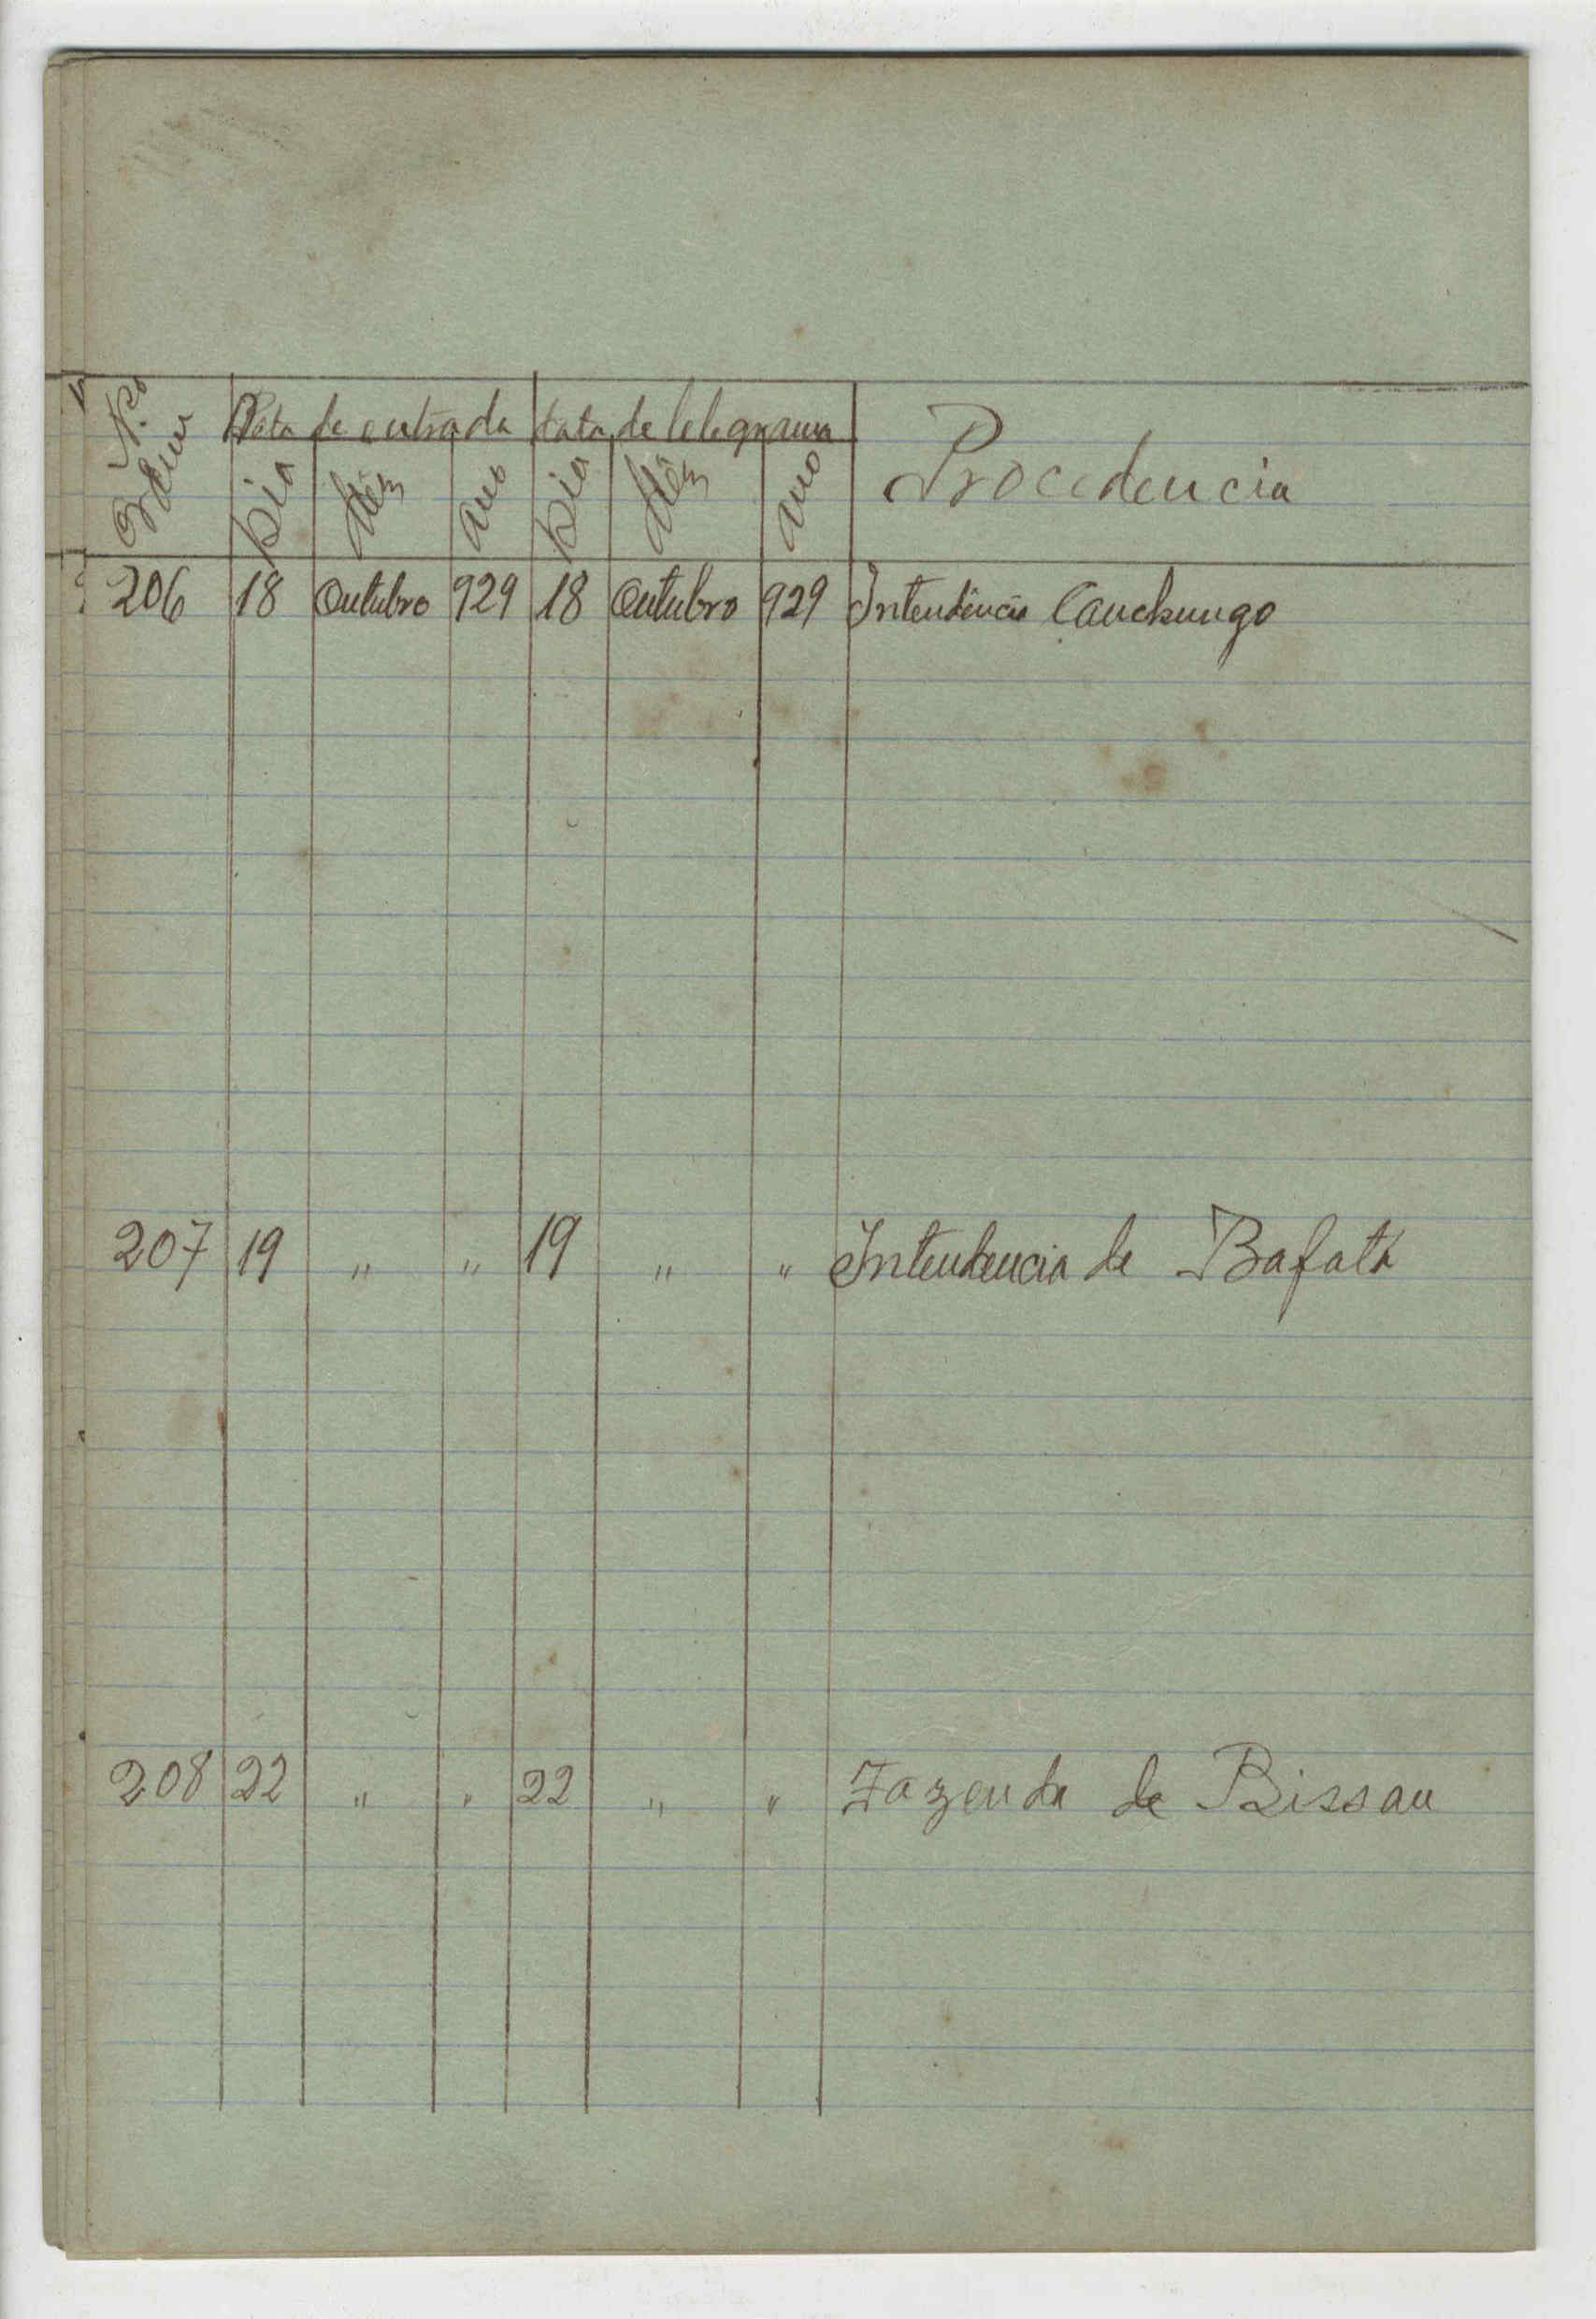 Nº Ordem Data de entrada data de telegrama Procedencia
Dia Mês Ano Dia Mês Ano
206 18 Outubro 929 18 Outubro 929 Intendência Canchungo
207 19 " " 19 " " Intendencia de Bafatá
208 22 " " 22 " " Fazenda de Bissau